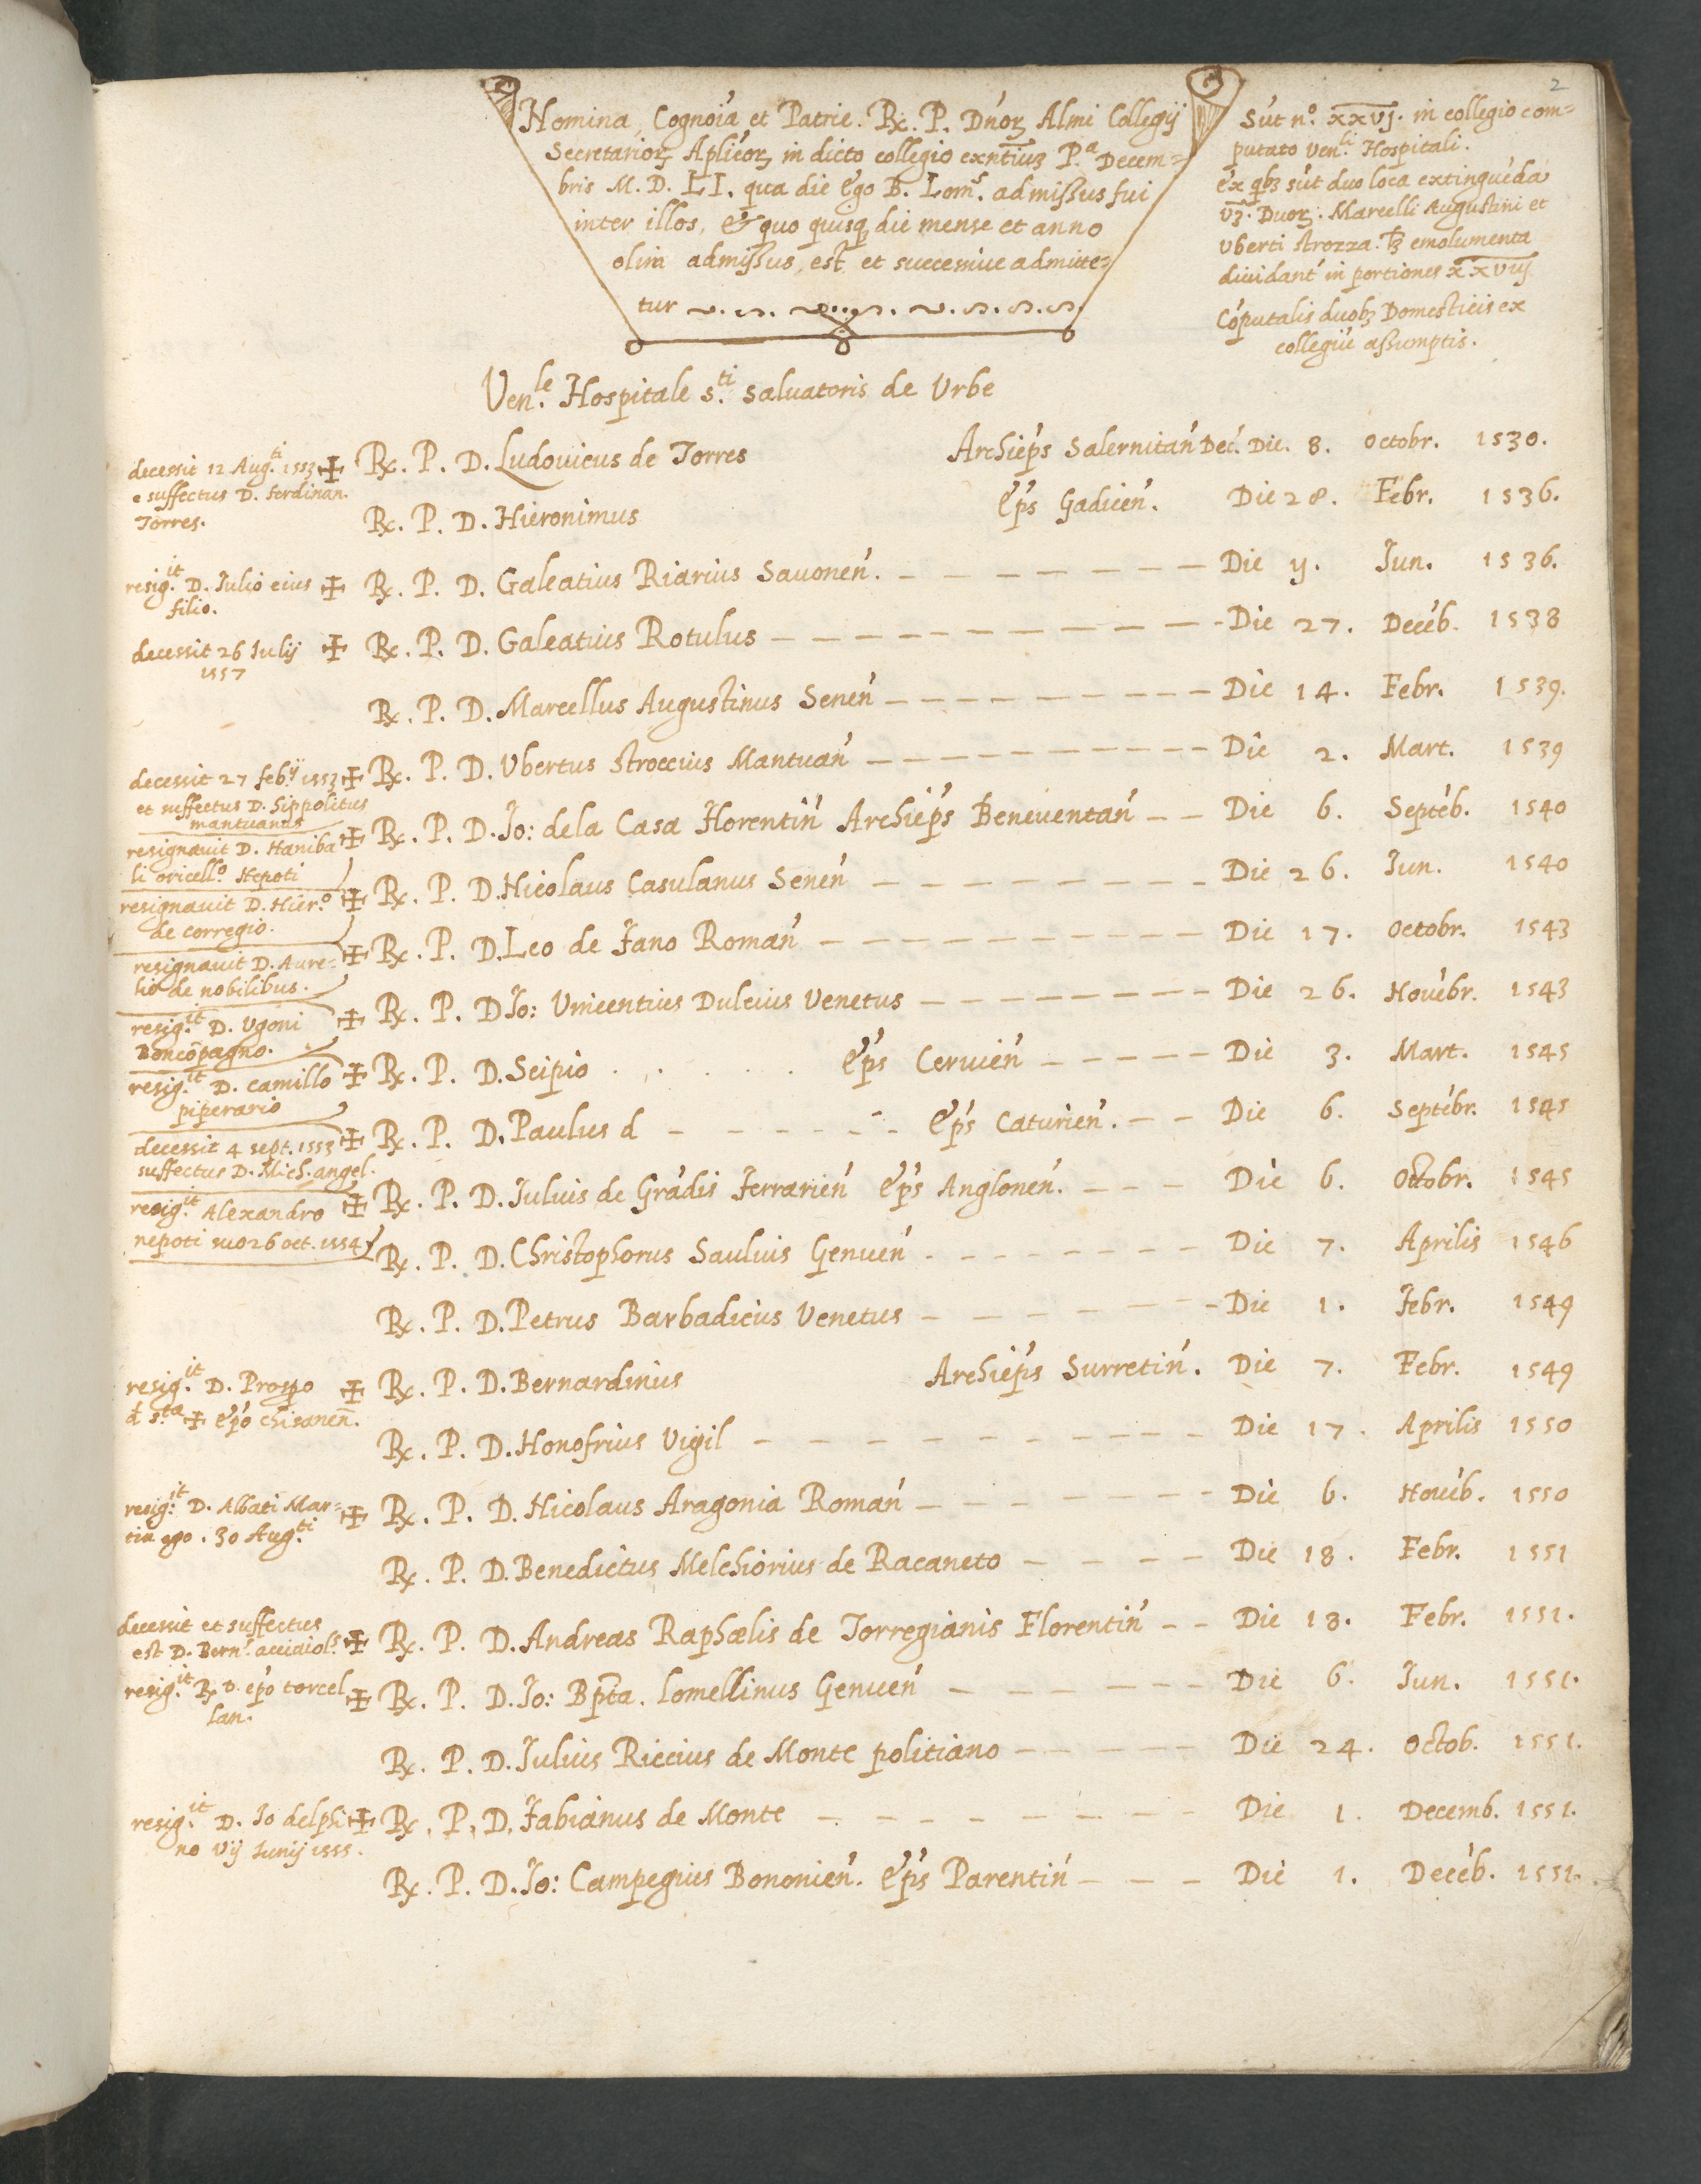 2
Homina, Cognoia et Patrie. Rx. P. Dnoꝝ Almi Collegij
Secretarioꝝ Aplicoꝝ in dicto collegio exntiuȝ P.a Decem=
bris M. D. LI. qua die Ego B. Lom.s admissus fui
inter illos, & quo quisqꝫ die mense et anno
olim admissus, est et successiue admitte=
tur
Sūt n.o xxvj. in collegio com=
putato Ven.li Hospitali.
ex qbꝫ sūt duo loca extinguēda
vꝫ. Duoꝝ. Marcelli Augustini et
Vberti strozza. tꝫ emolumenta
diuidant in portiones xxviij
Cōputatis duobꝫ Domesticis ex
collegiūe assumptis.
Ven.le Hospitale s.ti saluatoris de Vrbe
decessit 12 Aug.ti 1553 ✠
e suffectus D. ferdinan.
Torres.
Rx. P. D. Ludouicus de Torres Archieps Salernitan Dec. Die. 8. Octobr. 1530.
Rx. P. D. Hieronimus Eps Gadicen. Die 28. Febr. 1536.
resig.it D. Iulio eius ✠
filio.
Rx. P. D. Galeatius Riarius Sauonen. Die ij. Jun. 1536.
decessit 26 Iulij ✠
1557
Rx. P. D. Galeatius Rotulus Die 27. Decēb. 1538
Rx. P. D. Marcellus Augustinus Senen Die 14. Febr. 1539.
decessit 27 feb.ij 1553 ✠
et suffectus D. Hippolitus
mantuanus
Rx. P. D. Vbertus stroccius Mantuan Die 2. Mart. 1539
resignauit D. Haniba ✠
li oricell.o Nepoti
Rx. P. D. Jo: dela Casa Florentin Archieps Beneuentan Die 6. Septēb. 1540
resignauit D. Hier.o ✠
de corregio.
Rx. P. D. Nicolaus Casulanus Senen Die 26. Iun. 1540
resignauit D. Aure= ✠
lio de nobilibus.
Rx. P. D. Leo de Fano Roman Die 17. Octobr. 1543
resig.it D. Vgoni ✠
Boncōpagno.
Rx. P. D Jo: Vincentius Dulcius Venetus Die 26. Nouēbr. 1543
resig.it D. Camillo ✠
piperario
Rx. P. D. Scipio Eps Ceruien Die 3. Mart. 1545
decessit 4 sept. 1553 ✠
suffectus D. Mich. angel.
Rx. P. D. Paulus d Eps Caturien. Die 6. Septēbr. 1545
resig.it Alexandro ✠
nepoti suo 26 oct. 1554
Rx. P. D. Iulius de Grādis Ferrarien Eps Anglonen. Die 6. Octobr. 1545
Rx. P. D. Christophorus Saulius Genuen Die 7. Aprilis 1546
Rx. P. D. Petrus Barbadicus Venetus Die 1. Febr. 1549
resig.it D. Prospo ✠
d s.ta ✠ Epo chisanen.
Rx. P. D. Bernardinus Archieps Surretin. Die 7. Febr. 1549
Rx. P. D. Honofrius Vigil Die 17. Aprilis 1550
resig.it D. Abbati Mar= ✠
tinego. 30 Aug.ti
Rx. P. D. Nicolaus Aragonia Roman Die 6. Nouēb. 1550
Rx. P. D. Benedictus Melchiorius de Racaneto Die 18. Febr. 1551
decessit et suffectus
est D. Bern.s acciaiol.s ✠
Rx. P. D. Andreas Raphælis de Torregianis Florentin Die 18. Febr. 1551.
resig.it R D. epo torcel ✠
lan.
Rx. P. D. Jo: Bpta. Lomellinus Genuen Die 6. Iun. 1551.
Rx. P. D. Iulius Riccius de Monte politiano Die 24. Octob. 1551.
resig.it D. Io delphi ✠
no vij Iunij 1555.
Rx. P. D. Fabianus de Monte Die 1. Decemb. 1551.
Rx. P. D. Jo: Campegius Bononien. Eps Parentin Die 1. Decēb. 1551.